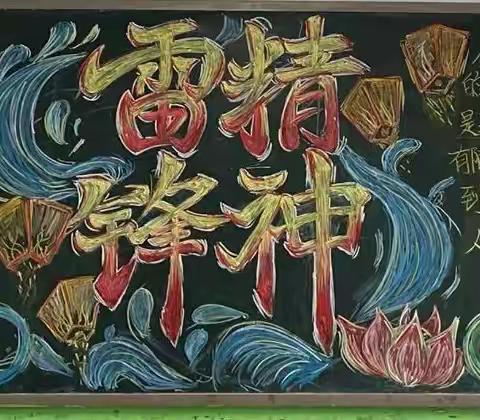 雷锋
精神
的是有
到